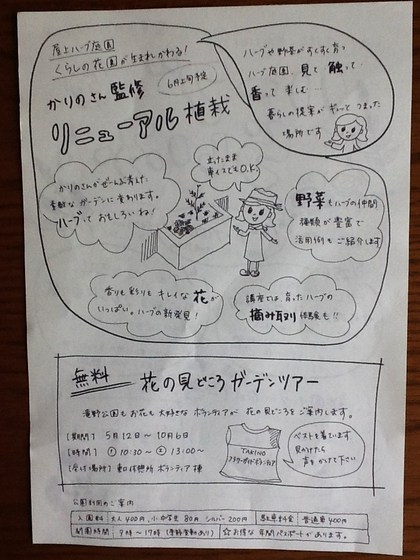 屋上ハーブ庭園
くらしの花園が生まれかわる！
かりのさん監修
6月上旬予定
リニューアル植栽
ハーブや野菜がすくすく育つ
ハーブ庭園、見て 触って…
香って 楽しむ…
暮らしの提案が ギュッとつまった
場所です
立ったまま
車イスでもO.K.
かりのさんがぜーんぶ考えた
素敵なガーデンに変わります。
ハーブっておもしろいね！
野菜もハーブの仲間
種類が豊富で
活用例もご紹介します
香りも彩りもキレイな花が
いっぱい。ハーブの新発見！
講座では、育ったハーブの
摘み取り体験も!!
無料
花の見どころガーデンツアー
滝野公園もお花も大好きな ボランティアが 花の見どころをご案内します。
[期間] 5月12日～10月6日
[時間] ① 10:30～ ② 13:00～
[受付場所] 東口休憩所 ボランティア棟
TAKINO
フラワーガイドボランティア
ベストを着ています
見かけたら
声をかけて下さい
公園利用のご案内
入園料 大人400円、小中学生80円 シルバー200円 駐車料金 普通車400円
開園時間 9時～17時（季節変動あり） ☆お得な年間パスポートがあります。